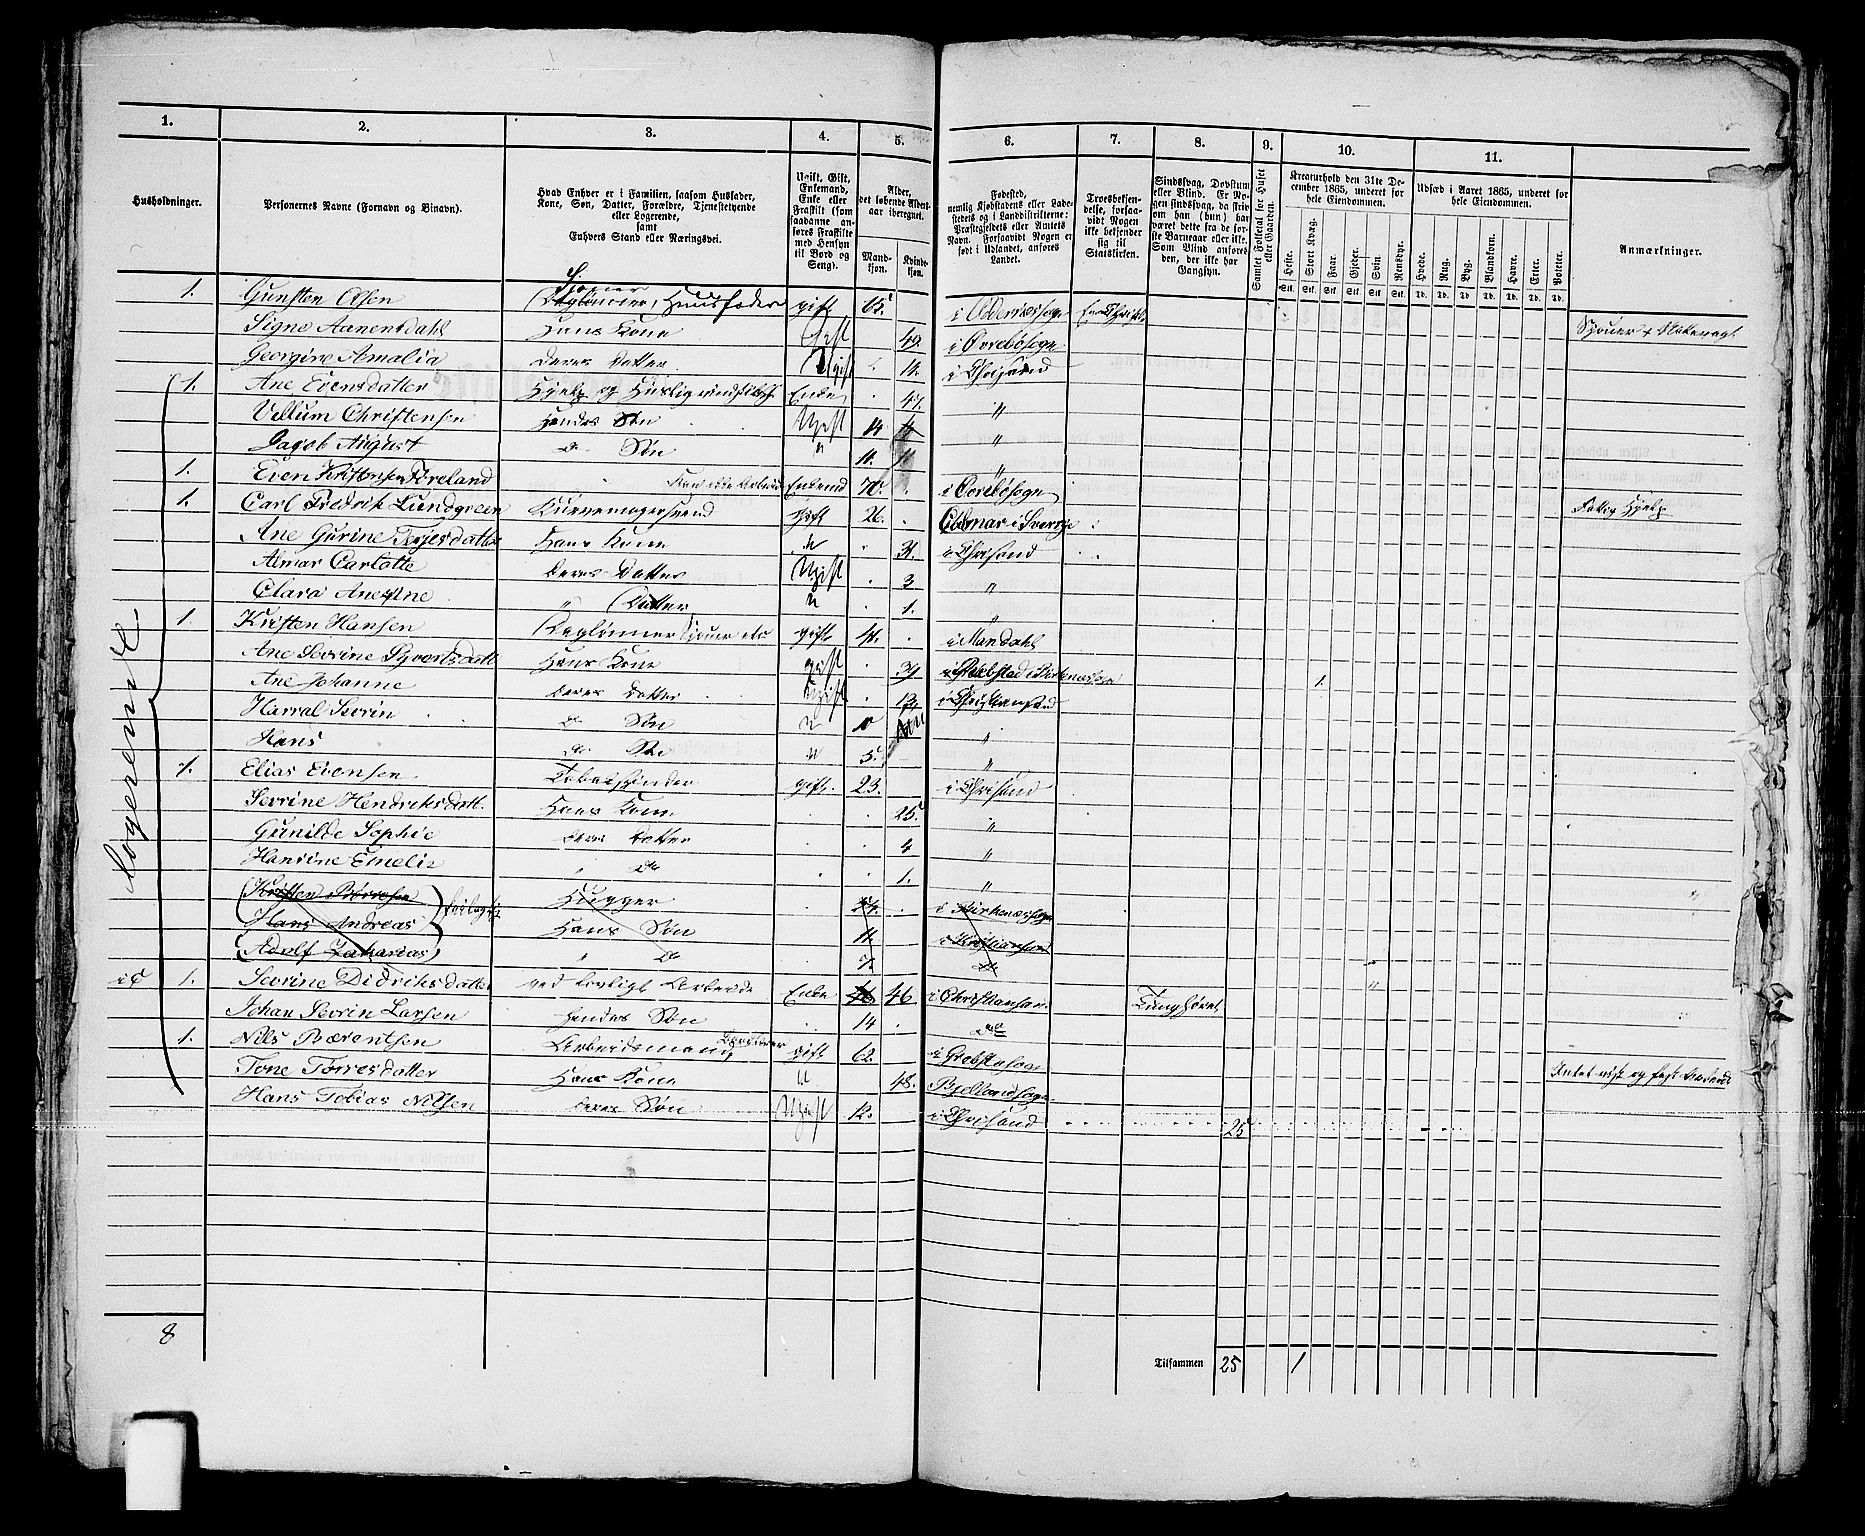 1. 2. 3. 4. 5. 6. 7. 8. 9. 10. 11.
Husholdninger. Personernes Navne (Fornavn og Binavn).
Hvad Enhver er i Familien, saasom Husfader, Kone, Søn, Datter, Forældre, Tjenestetyende eller Logerende, samt Enhvers Stand eller Næringsvei.
Ugift, Gift, Enkemand, Enke eller Fraskilt (som saadanne anføres Fraskilte med Hensyn til Bord og Seng).
Alder, det løbende Aldersaar iberegnet. Mandkjøn. Kvindekjøn.
Fødested, nemlig Kjøbstadens eller Ladestedets og i Landdistrikterne: Præstegjeldets eller Amtets Navn. Forsaavidt Nogen er født i Udlandet, anføres Landet.
Troesbekjendelse, forsaavidt Nogen ikke bekjender sig til Statskirken.
Sindssvag, Døvstum eller Blind. Er Nogen sindssvag, da skrives om han (hun) har været dette fra de første Barneaar eller ikke. Som Blind anføres den, der ikke har Gangsyn.
Samlet Folketal for Huset eller Gaarden.
Kreaturhold den 31te December 1865, underet for hele Eiendommen.
Heste. Stort Kvæg. Faar. Gjeder. Svin. Rensdyr.
Udsæd i Aaret 1865, underet for hele Eiendommen.
Hvede. Rug. Byg. Blandkorn. Havre. Erter. Poteter.
Anmærkninger.
Stk. Stk. Stk. Stk. Stk. Stk. Td. Td. Td. Td. Td. Td. Td.
Sjouer
1. Gunsten Olsen Daglønner, Huusfader gift 65. i Oddernessogn
Signe Aanensdahl Hans Kone Gift 49. i Øvrebøsogn Sjouer
Georgine Amalia Deres Datter Ugift 14. i Chrisand
1. Ane Evensdatter Enke 47. "
Villum Christensen Hendes Søn Ugift 14 "
Jagob August Do Søn " 11. "
1. Even Kristensen Føreland Enkemd 70. i Øvrebøsogn
1. Carl Fredrik Lundgreen Buntmagersvend gift 26. Calmar i Sverrje Fattig Hjelp
Ane Gurine Terjesdatter Hans Kone " 31. i Chrisand
Almar Carlotte Deres Datter Ugift 3 "
Clara Anestine " Datter " 1. "
1 Kristen Hansen Daglønner Sjouer etc gift 41. i Mandahl
Ane Sevrine Syvertsdatt Hans Kone gift
Ane Johanne Deres Datter Ugift 13. i Christiansand 1.
Harral Sevrin Do Søn " 10 "
Hans Do Søn " 5. "
1. Elias Evensen gift. 23. i Chrisand
Sevrine Hendriksdatt. Hans Kone 25. "
Gunilde Sophie Deres Datter 4 "
Hansine Emelie " Do 1. "
Kristen Børresen Hugger 54. i Birkenæssogn
Hans Andreas Hans Søn 11. i Christiansand
Adolf Zakarias " Do 7. Do
1. Sevrine Didriksdatter ved lovligt Arbeide Enke 46 i Christiansan Tunghøret
Johan Sevrin Larsen Hendes Søn 14 Do
1. Nils Bærentsen Arbeidsmand gift 62.
Tone Torresdatter Hans Kone " 48. Bjellandsogn
Hans Tobias Nilsen Deres Søn Ugift 12. i Chrisand 25
Logerende
8
Tilsammen 25 1